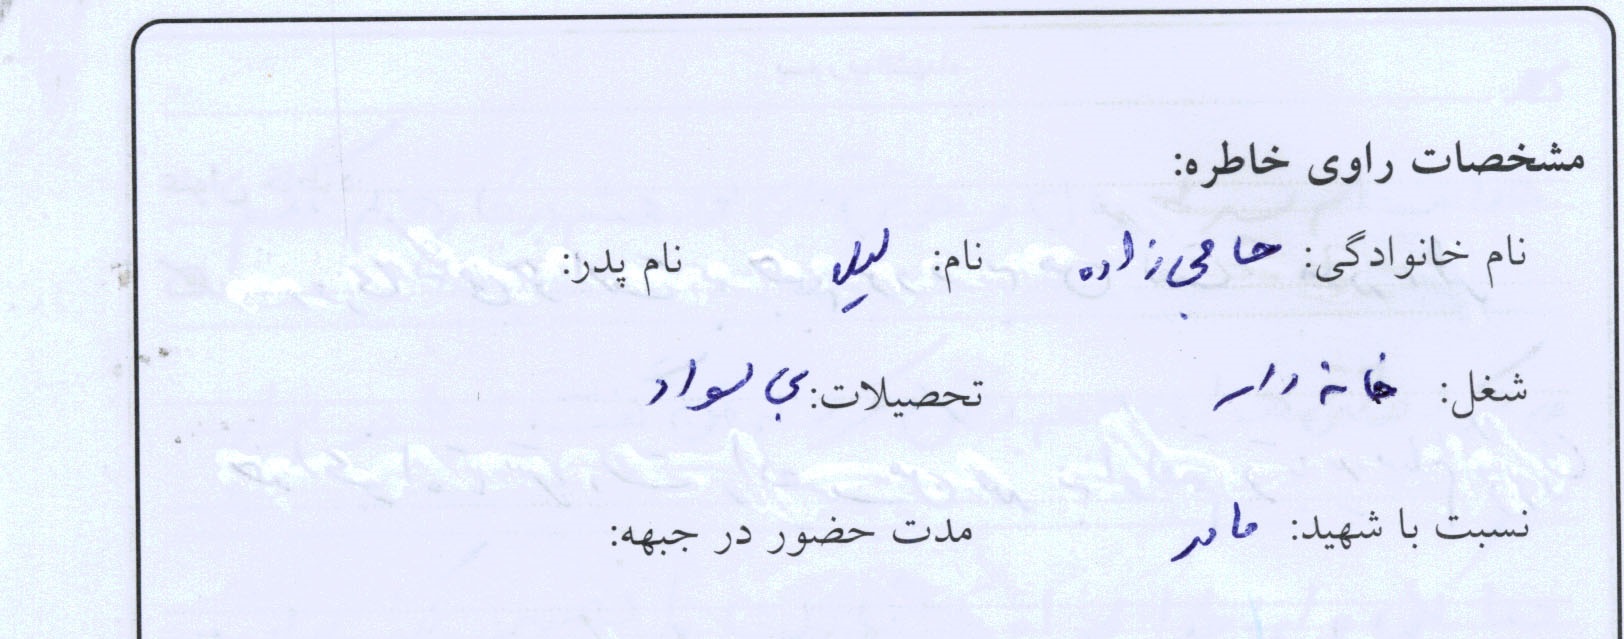 مشخصات راوی خاطره:
نام خانوادگی: حاجی زاده نام: لیلا نام پدر:
شغل: خانه دار تحصیلات: بی سواد
نسبت با شهید: مادر مدت حضور در جبهه: